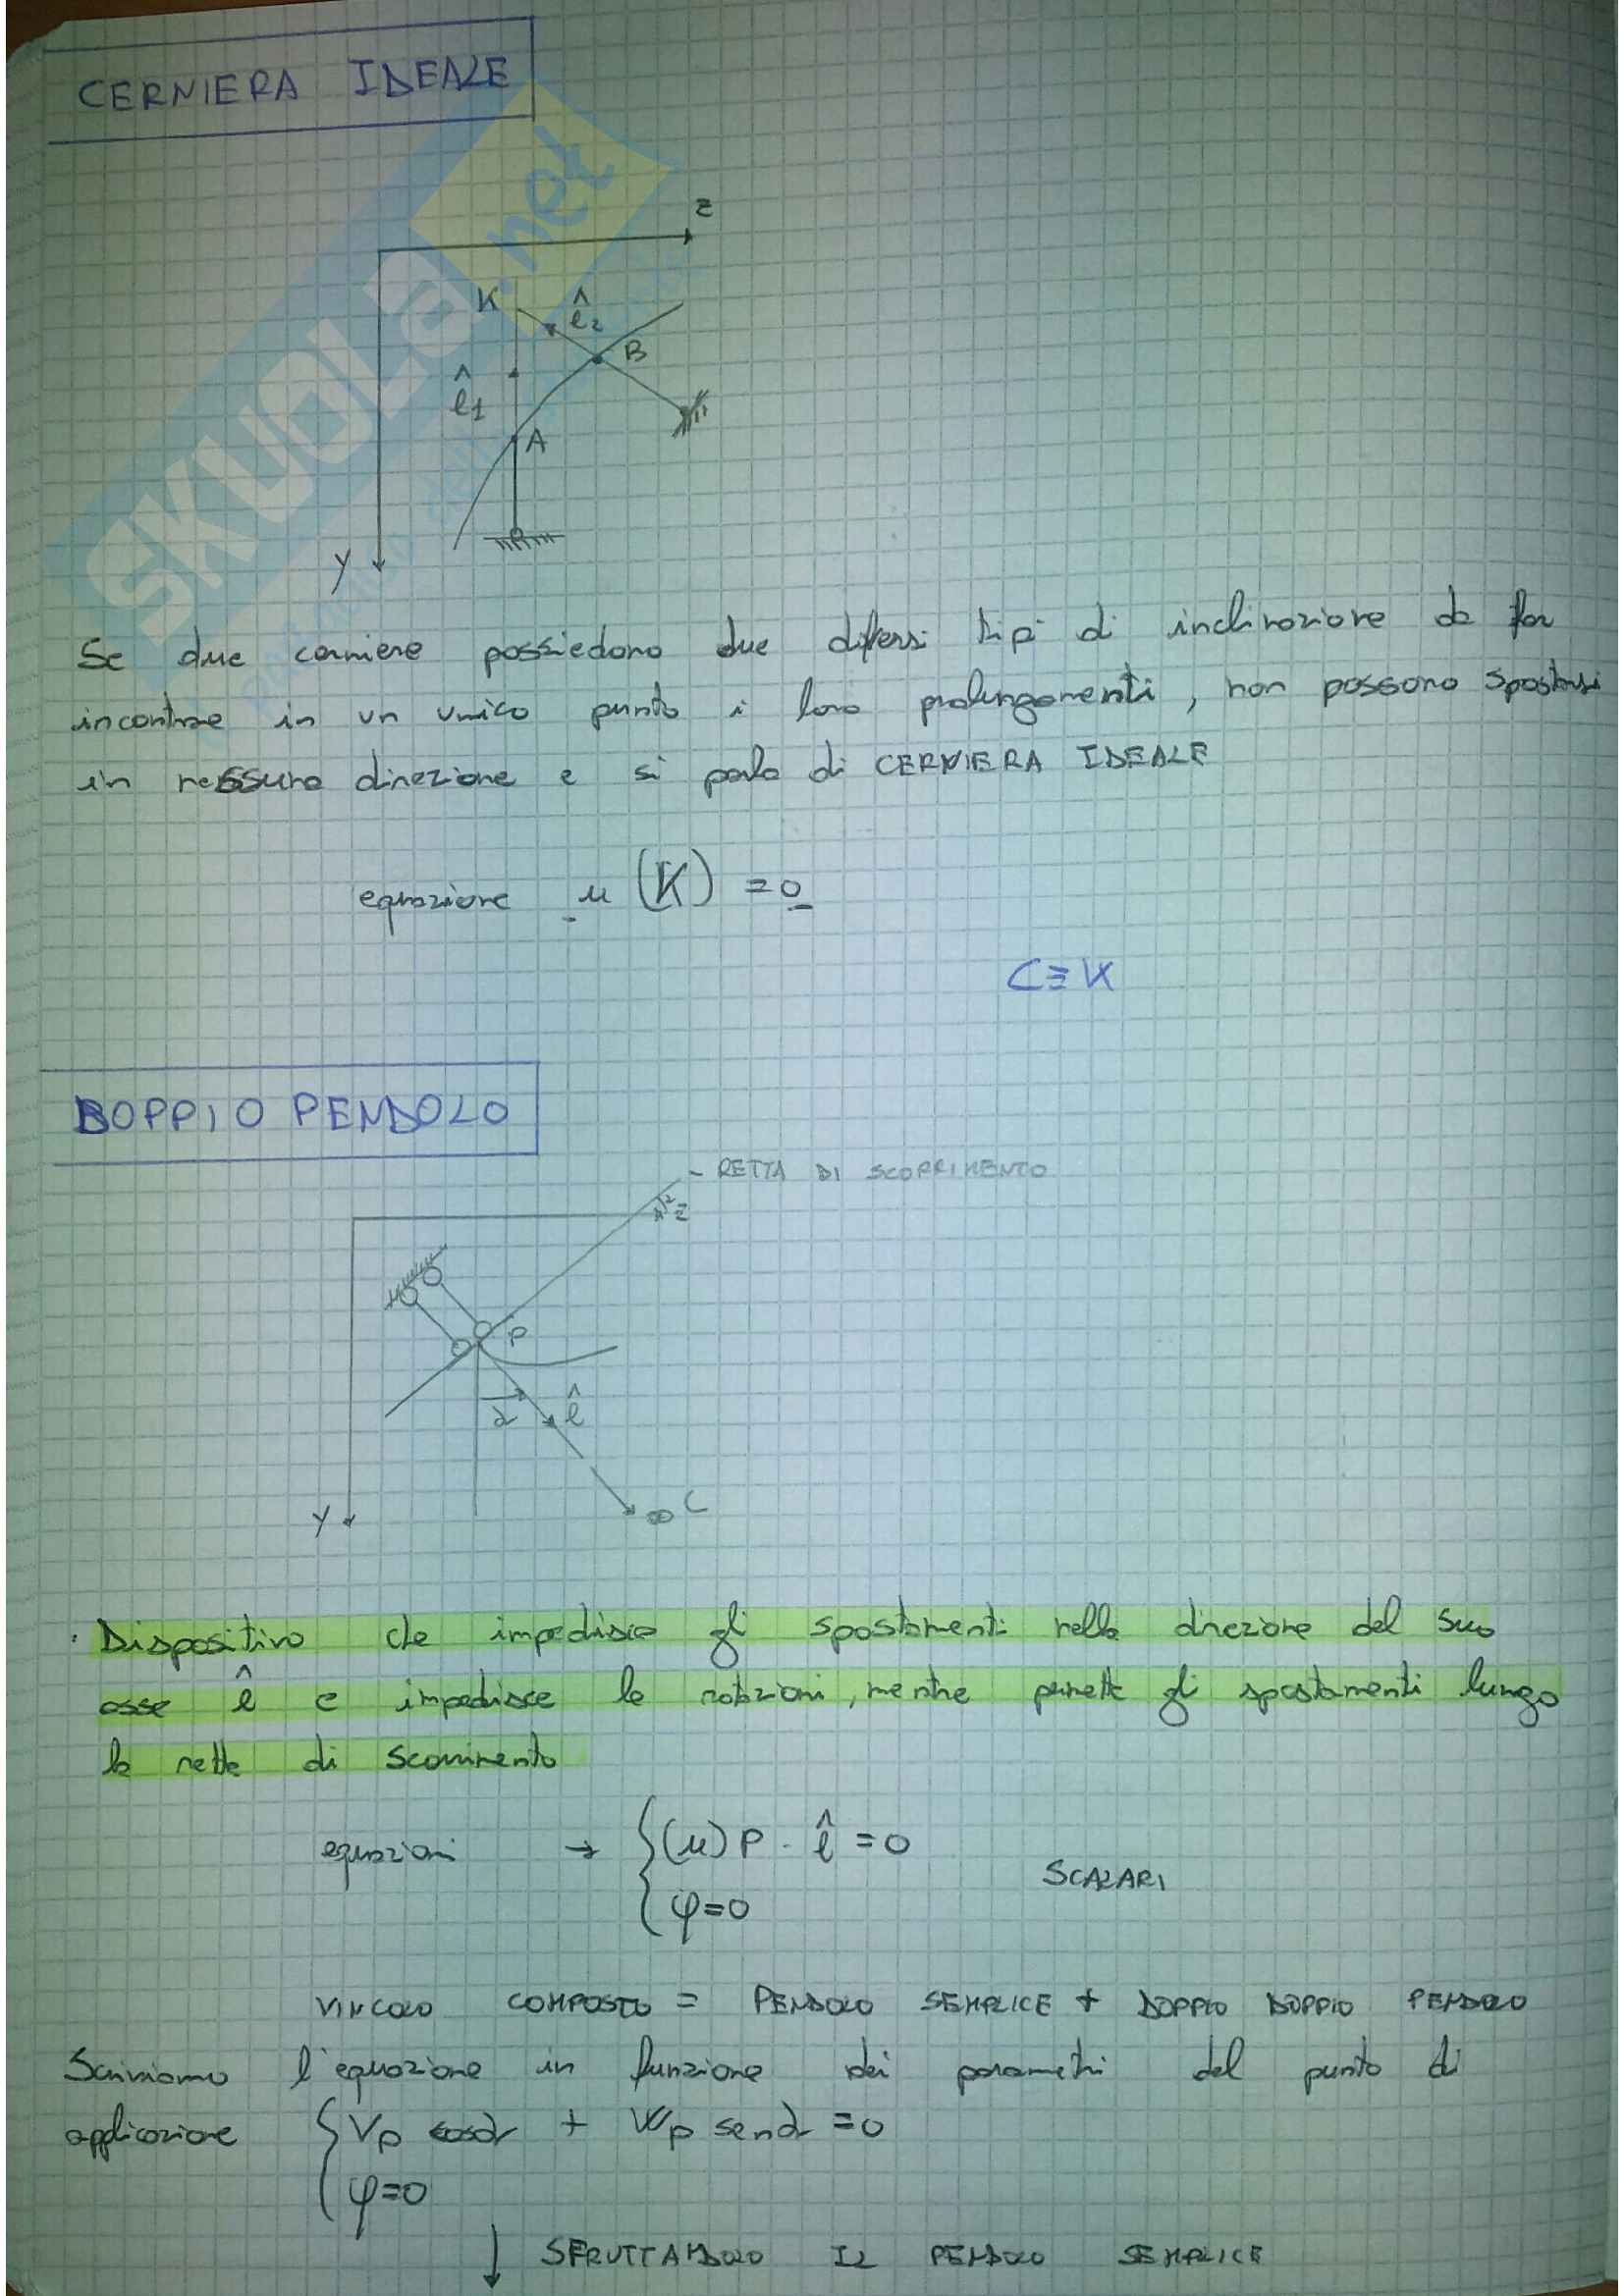 CERNIERA IDEALE
SKUOLA.net
z
K
ê₂
B
ℓ̂1
A
y
Se due cerniere possiedono due diversi tipi di inclinazione da far
incontrare in un unico punto i loro prolungamenti, non possono spostarsi
in nessuna direzione e si parla di CERNIERA IDEALE
equazione u (K) = 0
C ≡ K
DOPPIO PENDOLO
- RETTA DI SCORRIMENTO
z
P
α
ℓ̂
y
∞ C
· Dispositivo che impedisce gli spostamenti nella direzione del suo
asse ℓ̂ e impedisce le rotazioni, mentre permette gli spostamenti lungo
la retta di scorrimento
equazioni → { (u)P · ℓ̂ = 0
φ=0
SCALARI
VINCOLO COMPOSTO = PENDOLO SEMPLICE + DOPPIO DOPPIO PENDOLO
Scriviamo l'equazione in funzione dei parametri del punto di
applicazione { Vp cosα + Wp senα = 0
φ=0
↓ SFRUTTANDOLO IL PENDOLO SEMPLICE